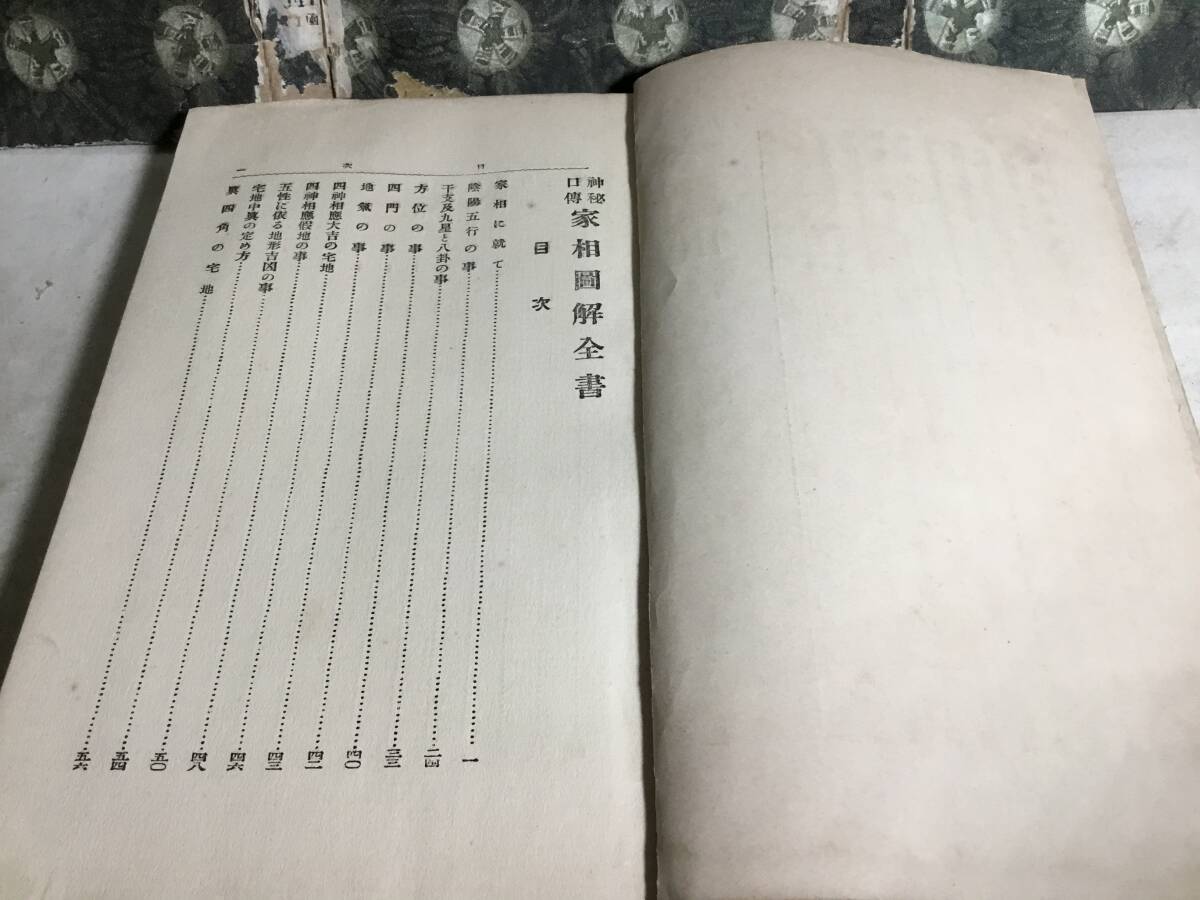 目次
一
神秘口傳 家相圖解全書
目次
家相に就て……一
陰陽五行の事……二四
干支及九星と八卦の事……三三
方位の事……四〇
四門の事……四二
地氣の事……四三
四神相應大吉の宅地……四六
四神相應假地の事……四八
五性に依る地形吉凶の事……五〇
宅地中眞の定め方……五四
眞四角の宅地……五六